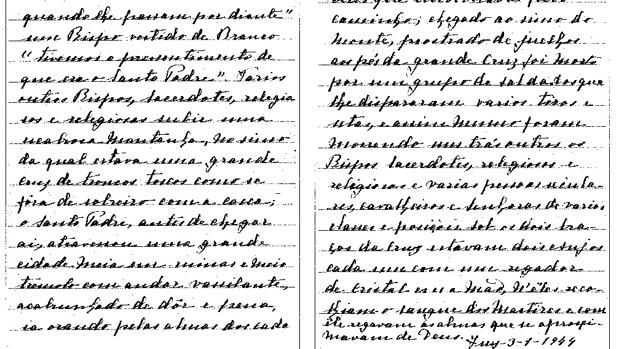 quando lhe passam por diante"
um Bispo vestido de Branco
"tivemos o presentimento de
que era o Santo Padre". Varios
outros Bispos, sacerdotes, religio
sos e religiosas subir uma
escabrosa montanha, no simo
da qual estava uma grande
cruz de troncos toscos como se
fôra de sobreiro com a casca;
o Santo Padre, antes de chegar
aí, atravessou uma grande
cidade meia em ruinas e meio
tremolo com andar vacilante,
acabrunhado de dôr e pena,
ia orando pelas almas dos cada
caminho; chegado ao simo do
monte, prostrado de juelhos
aos pés da grande Cruz foi morto
por um grupo de soldados que
lhe dispararam varios tiros e
setas, e assim mesmo foram
morrendo uns trás outros os
Bispos sacerdotes, religiosos e
religiosas e varias pessoas secula-
res, cavalheiros e senhoras de varias
classes e posições. Sob os dois bra-
ços da Cruz estavam dois anjos
cada um com um regador
de cristal em a mão, n'êles reco-
lhiam o sangue dos Martires e com
êle regavam as almas que se aproxi-
mavam de Deus.
Tuy-3-1-1944